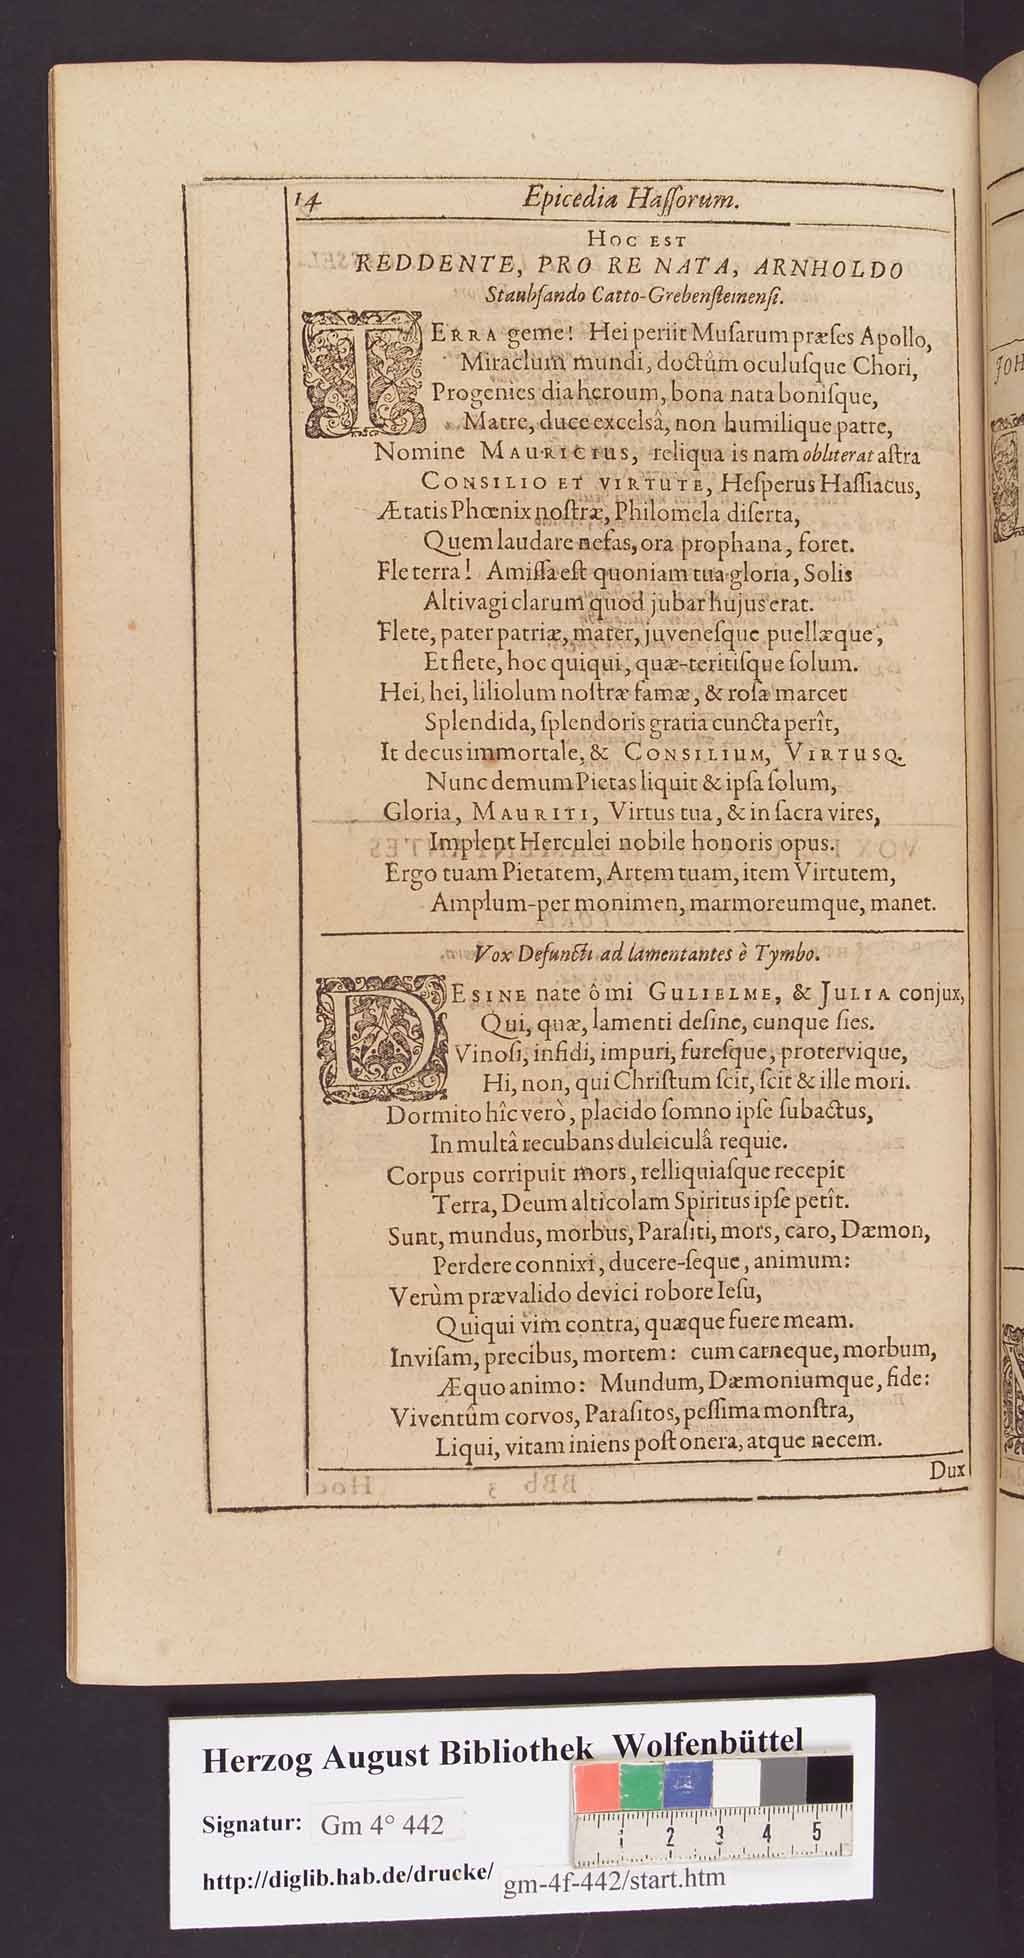 14 Epicedia Haſſorum.
HOC EST
REDDENTE, PRO RE NATA, ARNHOLDO
Staubſando Catto-Grebenſteinenſi.
TERRA geme! Hei periit Muſarum præſes Apollo,
Miraclum mundi, doctûm oculuſque Chori,
Progenies dia heroum, bona nata boniſque,
Matre, duce excelsâ, non humilique patre,
Nomine MAURICIUS, reliqua is nam obliterat aſtra
CONSILIO ET VIRTUTE, Heſperus Haſſiacus,
Ætatis Phœnix noſtræ, Philomela diſerta,
Quem laudare nefas, ora prophana, foret.
Fle terra! Amiſſa eſt quoniam tua gloria, Solis
Altivagi clarum quod jubar hujus erat.
Flete, pater patriæ, mater, juveneſque puellæque,
Et flete, hoc quiqui, quæ-teritiſque ſolum.
Hei, hei, liliolum noſtræ famæ, & roſa marcet
Splendida, ſplendoris gratia cuncta perît,
It decus immortale, & CONSILIUM, VIRTUSQ.
Nunc demum Pietas liquit & ipſa ſolum,
Gloria, MAURITI, Virtus tua, & in ſacra vires,
Implent Herculei nobile honoris opus.
Ergo tuam Pietatem, Artem tuam, item Virtutem,
Amplum-per monimen, marmoreumque, manet.
Vox Defuncti ad lamentantes è Tymbo.
DESINE nate ô mi GULIELME, & JULIA conjux,
Qui, quæ, lamenti deſine, cunque ſies.
Vinoſi, infidi, impuri, fureſque, protervique,
Hi, non, qui Chriſtum ſcit, ſcit & ille mori.
Dormito hîc verò, placido ſomno ipſe ſubactus,
In multâ recubans dulciculâ requie.
Corpus corripuit mors, relliquiaſque recepit
Terra, Deum alticolam Spiritus ipſe petît.
Sunt, mundus, morbus, Paraſiti, mors, caro, Dæmon,
Perdere connixi, ducere-ſeque, animum:
Verùm prævalido devici robore Ieſu,
Quiqui vim contra, quæque fuere meam.
Inviſam, precibus, mortem: cum carneque, morbum,
Æquo animo: Mundum, Dæmoniumque, fide:
Viventûm corvos, Paraſitos, peſſima monſtra,
Liqui, vitam iniens poſt onera, atque necem.
Dux
Herzog August Bibliothek Wolfenbüttel
Signatur: Gm 4° 442
http://diglib.hab.de/drucke/ gm-4f-442/start.htm
1 2 3 4 5